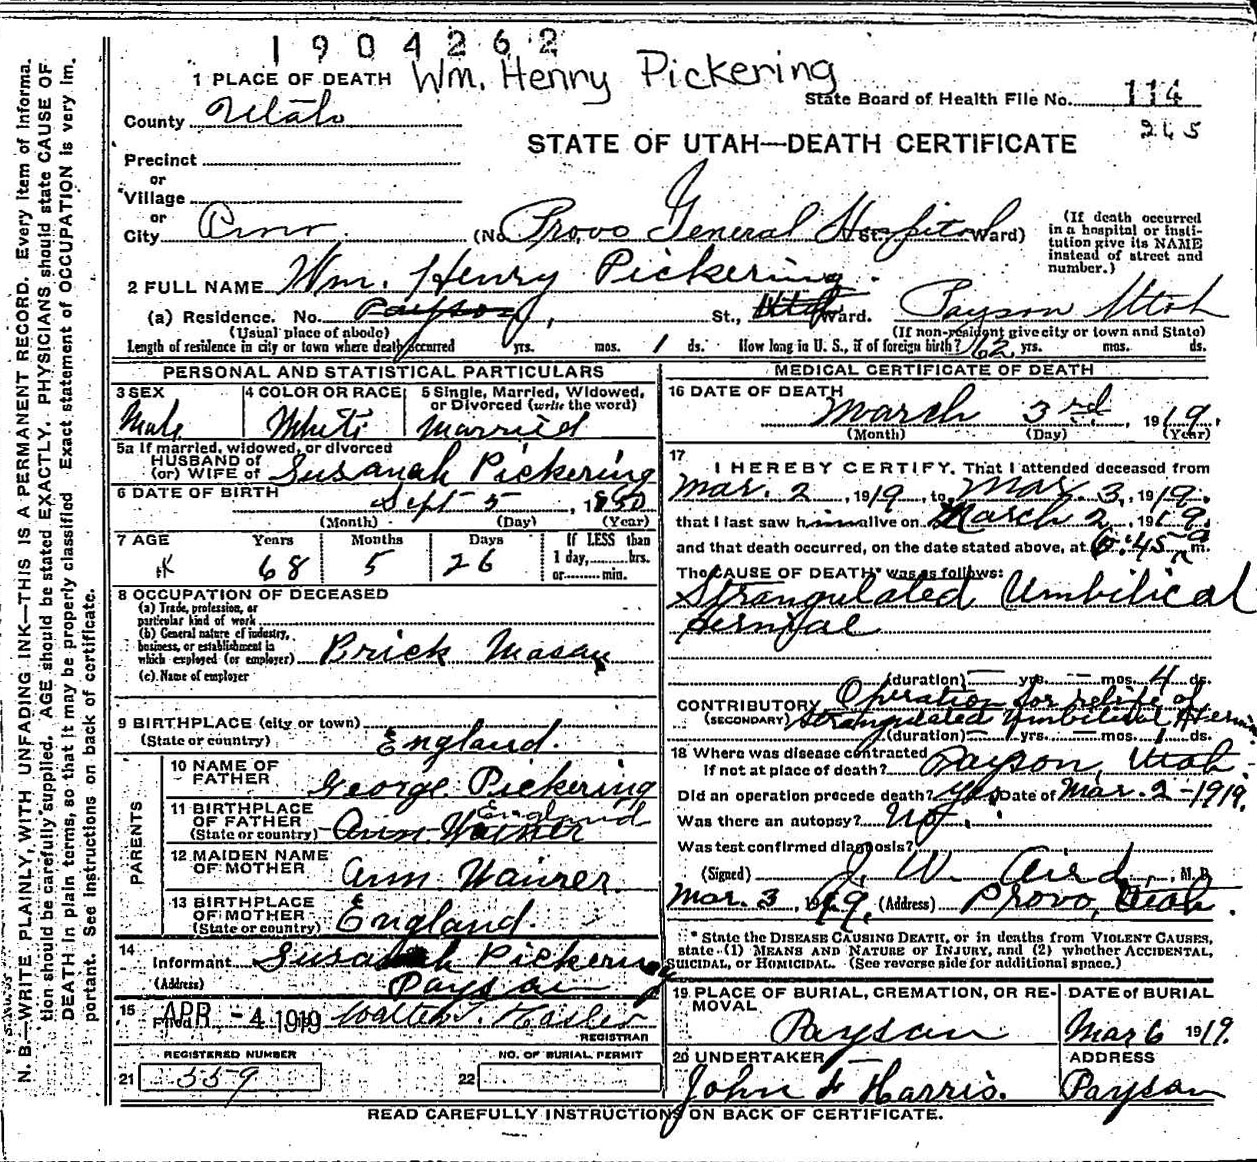 1904262
1 PLACE OF DEATH Wm. Henry Pickering
State Board of Health File No. 114
County Utah 265
STATE OF UTAH—DEATH CERTIFICATE
Precinct
or
Village
or
City Provo (No. Provo General Hospital St. Ward)
(If death occurred in a hospital or institution give its NAME instead of street and number.)
2 FULL NAME Wm. Henry Pickering.
(a) Residence. No. Payson, St., Utah Ward. Payson Utah
(Usual place of abode) (If non-resident give city or town and State)
Length of residence in city or town where death occurred yrs. mos. 1 ds. How long in U. S., if of foreign birth? 62 yrs. mos. ds.
PERSONAL AND STATISTICAL PARTICULARS
3 SEX 4 COLOR OR RACE 5 Single, Married, Widowed, or Divorced (write the word)
Male White Married
5a If married, widowed, or divorced
HUSBAND of
(or) WIFE of Susanah Pickering
6 DATE OF BIRTH Sept 5, 1850
(Month) (Day) (Year)
7 AGE Years Months Days If LESS than
68 5 26 1 day, hrs.
or min.
8 OCCUPATION OF DECEASED
(a) Trade, profession, or
particular kind of work
(b) General nature of industry,
business, or establishment in
which employed (or employer) Brick Mason
(c) Name of employer
9 BIRTHPLACE (city or town)
(State or country) England.
PARENTS
10 NAME OF FATHER George Pickering
11 BIRTHPLACE OF FATHER England
(State or country)
12 MAIDEN NAME OF MOTHER Ann Wainer.
13 BIRTHPLACE OF MOTHER
(State or country) England.
14
Informant Susanah Pickering
(Address) Payson
15
Filed APR -4 1919 Walter T. Hasler
REGISTRAR
REGISTERED NUMBER NO. OF BURIAL PERMIT
21 559 22
MEDICAL CERTIFICATE OF DEATH
16 DATE OF DEATH
March 3rd, 1919.
(Month) (Day) (Year)
17
I HEREBY CERTIFY, That I attended deceased from
Mar. 2, 1919, to Mar. 3, 1919.
that I last saw him alive on March 2, 1919.
and that death occurred, on the date stated above, at 6:45 a m.
The CAUSE OF DEATH* was as follows:
Strangulated Umbilical
Hernial
(duration) — yrs. — mos. 4 ds.
CONTRIBUTORY Operation for relife of
(SECONDARY) Strangulated Umbilical Hernia
(duration) — yrs. — mos. 1 ds.
18 Where was disease contracted
If not at place of death? Payson, Utah.
Did an operation precede death? Yes Date of Mar. 2 - 1919.
Was there an autopsy? No.
Was test confirmed diagnosis?
(Signed) J. W. Aird, M. D.
Mar. 3, 1919, (Address) Provo, Utah.
* State the DISEASE CAUSING DEATH, or in deaths from VIOLENT CAUSES,
state (1) MEANS AND NATURE OF INJURY, and (2) whether ACCIDENTAL,
SUICIDAL, or HOMICIDAL. (See reverse side for additional space.)
19 PLACE OF BURIAL, CREMATION, OR REMOVAL DATE of BURIAL
Payson Mar 6 1919.
20 UNDERTAKER ADDRESS
John F Harris. Payson
READ CAREFULLY INSTRUCTIONS ON BACK OF CERTIFICATE.
N. B.—WRITE PLAINLY, WITH UNFADING INK—THIS IS A PERMANENT RECORD. Every item of information
should be carefully supplied. AGE should be stated EXACTLY. PHYSICIANS should state CAUSE OF
DEATH in plain terms, so that it may be properly classified. Exact statement of OCCUPATION is very important.
See instructions on back of certificate.